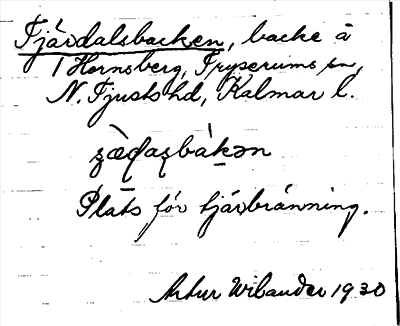 Tjärdalsbacken, backe å
Hornsberg, Tryserums sn,
N. Tjusts hd, Kalmar l.
Plats för tjärbränning.
Artur Wilander 1930